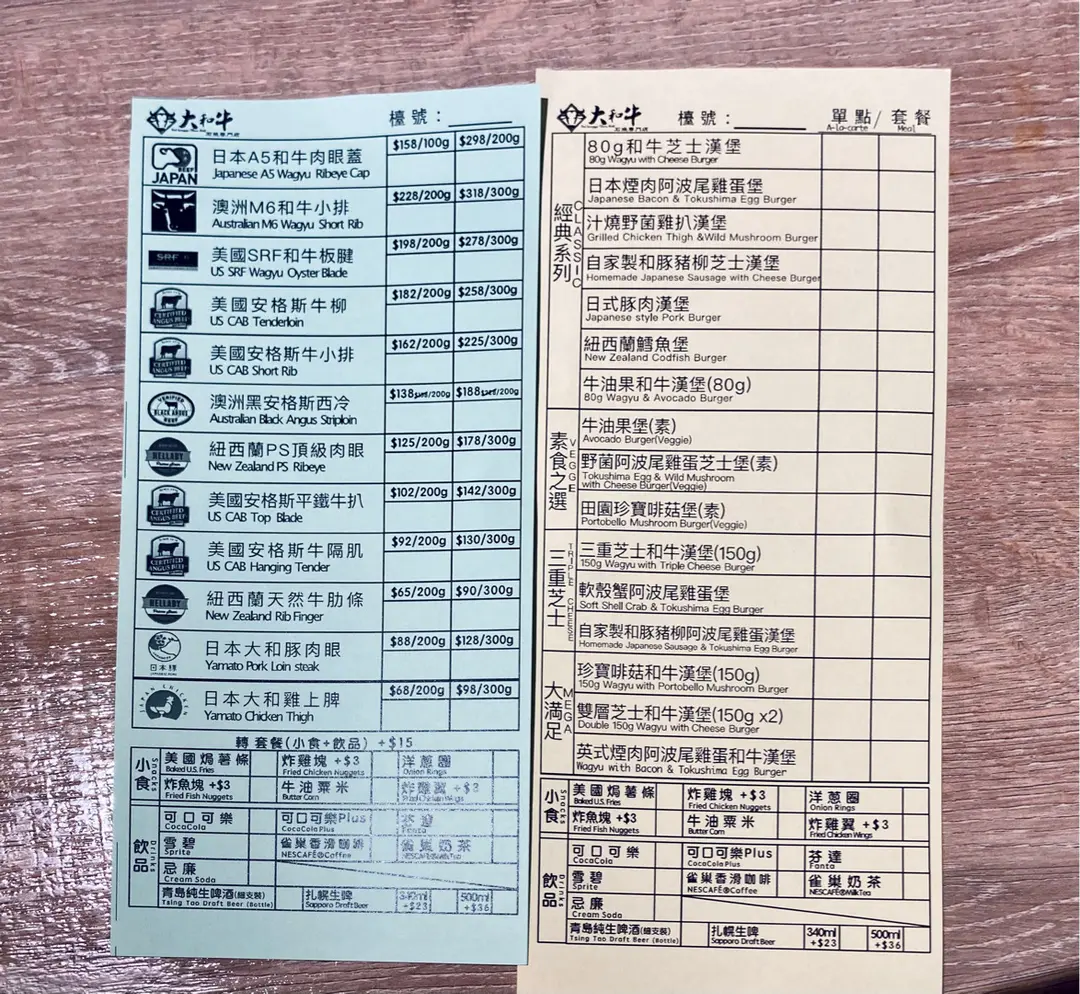 大和牛
檯號：
JAPAN
日本A5和牛肉眼蓋
$158/100g $298/200g
Japanese A5 Wagyu Ribeye Cap
澳洲M6和牛小排
$228/200g $318/300g
Australian M6 Wagyu Short Rib
SRF
美國SRF和牛板腱
$198/200g $278/300g
US SRF Wagyu Oyster Blade
CERTIFIED
ANGUS BEEF
美國安格斯牛柳
$182/200g $258/300g
US CAB Tenderloin
CERTIFIED
ANGUS BEEF
美國安格斯牛小排
$162/200g $225/300g
US CAB Short Rib
VERIFIED
BLACK ANGUS
BEEF
澳洲黑安格斯西冷
$138/200g $188/200g
Australian Black Angus Striploin
HELLABY
紐西蘭PS頂級肉眼
$125/200g $178/300g
New Zealand PS Ribeye
CERTIFIED
ANGUS BEEF
美國安格斯平鐵牛扒
$102/200g $142/300g
US CAB Top Blade
CERTIFIED
ANGUS BEEF
美國安格斯牛隔肌
$92/200g $130/300g
US CAB Hanging Tender
HELLABY
紐西蘭天然牛肋條
$65/200g $90/300g
New Zealand Rib Finger
日本豚
日本大和豚肉眼
$88/200g $128/300g
Yamato Pork Loin steak
JAPAN CHICKEN
日本大和雞上脾
$68/200g $98/300g
Yamato Chicken Thigh
轉 套餐(小食+飲品) +$15
小食 Snacks
美國焗薯條 炸雞塊 +$3 洋蔥圈
Baked U.S. Fries Fried Chicken Nuggets Onion Rings
炸魚塊 +$3 牛油粟米 炸雞翼 +$3
Fried Fish Nuggets Butter Corn Fried Chicken Wings
飲品 Drinks
可口可樂 可口可樂Plus 芬達
CocaCola CocaCola Plus Fanta
雪碧 雀巢香滑咖啡 雀巢奶茶
Sprite NESCAFÉ®Coffee NESCAFÉ®MilkTea
忌廉
Cream Soda
青島純生啤酒(細支裝) 扎幌生啤 340ml 500ml
Tsing Tao Draft Beer (Bottle) Sapporo Draft Beer +$23 +$36
大和牛
檯號：
單點/ 套餐
A-la-carte Meal
經典系列 CLASSIC
80g和牛芝士漢堡
80g Wagyu with Cheese Burger
日本煙肉阿波尾雞蛋堡
Japanese Bacon & Tokushima Egg Burger
汁燒野菌雞扒漢堡
Grilled Chicken Thigh &Wild Mushroom Burger
自家製和豚豬柳芝士漢堡
Homemade Japanese Sausage with Cheese Burger
日式豚肉漢堡
Japanese style Pork Burger
紐西蘭鱈魚堡
New Zealand Codfish Burger
牛油果和牛漢堡(80g)
80g Wagyu & Avocado Burger
素食之選 VEGGE
牛油果堡(素)
Avocado Burger(Veggie)
野菌阿波尾雞蛋芝士堡(素)
Tokushima Egg & Wild Mushroom
with Cheese Burger(Veggie)
田園珍寶啡菇堡(素)
Portobello Mushroom Burger(Veggie)
三重芝士 TRIPLE CHEESE
三重芝士和牛漢堡(150g)
150g Wagyu with Triple Cheese Burger
軟殼蟹阿波尾雞蛋堡
Soft Shell Crab & Tokushima Egg Burger
自家製和豚豬柳阿波尾雞蛋漢堡
Homemade Japanese Sausage & Tokushima Egg Burger
大滿足 MEGA
珍寶啡菇和牛漢堡(150g)
150g Wagyu with Portobello Mushroom Burger
雙層芝士和牛漢堡(150g x2)
Double 150g Wagyu with Cheese Burger
英式煙肉阿波尾雞蛋和牛漢堡
Wagyu with Bacon & Tokushima Egg Burger
小食 Snacks
美國焗薯條 炸雞塊 +$3 洋蔥圈
Baked U.S. Fries Fried Chicken Nuggets Onion Rings
炸魚塊 +$3 牛油粟米 炸雞翼 +$3
Fried Fish Nuggets Butter Corn Fried Chicken Wings
飲品 Drinks
可口可樂 可口可樂Plus 芬達
CocaCola CocaCola Plus Fanta
雪碧 雀巢香滑咖啡 雀巢奶茶
Sprite NESCAFÉ®Coffee NESCAFÉ®MilkTea
忌廉
Cream Soda
青島純生啤酒(細支裝) 扎幌生啤 340ml 500ml
Tsing Tao Draft Beer (Bottle) Sapporo Draft Beer +$23 +$36